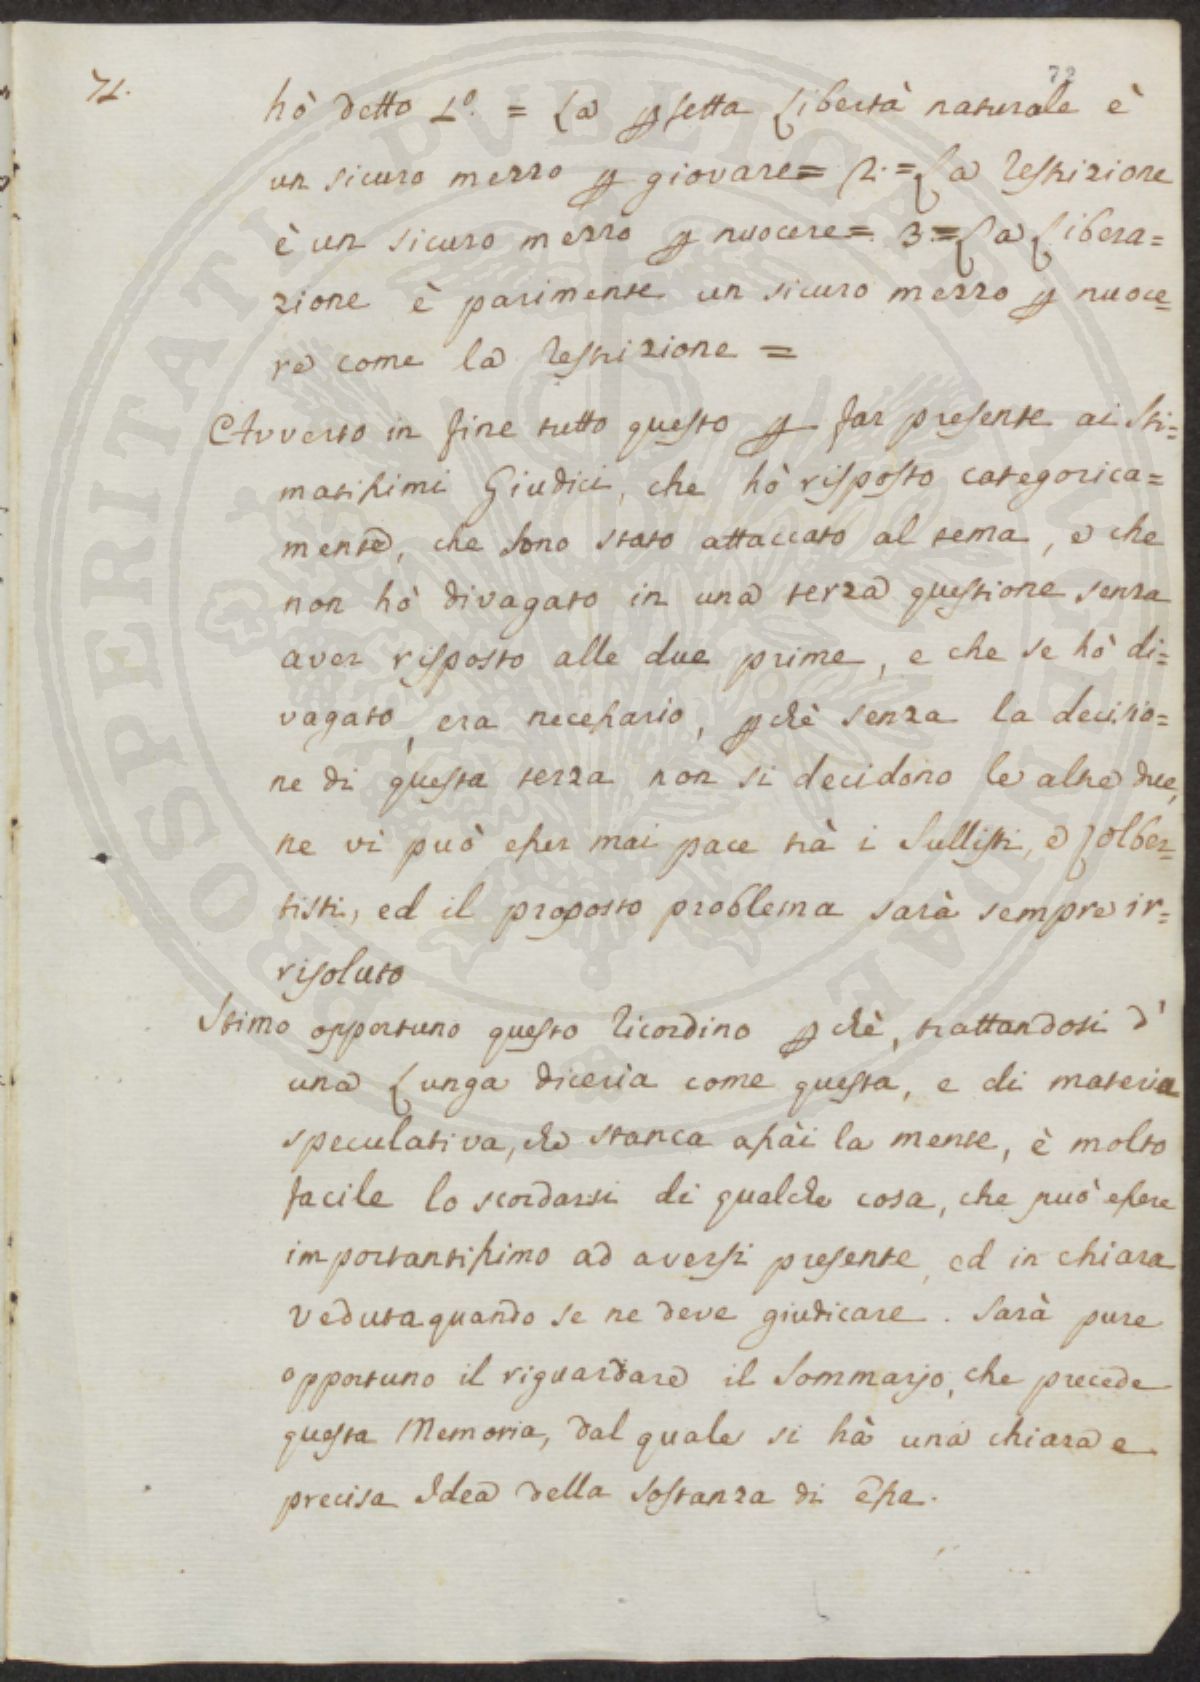 72
71.
hò detto 1º. = La ꝑfetta Libertà naturale è
un sicuro mezzo ꝑ giovare= 2.=La restrizione
è un sicuro mezzo ꝑ nuocere= 3.=La Libera=
zione è parimente un sicuro mezzo ꝑ nuoce=
re come la restrizione =
Avverto in fine tutto questo ꝑ far presente ai Sti=
matissimi Giudici, che hò risposto categorica=
mente, che sono stato attaccato al tema, e che
non hò divagato in una terza questione senza
aver risposto alle due prime, e che se hò di=
vagato, era necessario, ꝑchè senza la decisio=
ne di questa terza non si decidono le altre due,
ne vi può esser mai pace trà i Sullisti, e Colber=
tisti, ed il proposto problema sarà sempre ir=
risoluto
Stimo opportuno questo ricordino ꝑchè, trattandosi d'
una Lunga diceria come questa, e di materia
speculativa, che stanca assài la mente, è molto
facile lo scordarsi di qualche cosa, che può essere
importantissimo ad aversi presente, ed in chiara
veduta quando se ne deve giudicare. Sarà pure
opportuno il riguardare il Sommarjo, che precede
questa Memoria, dal quale si hà una chiara e
precisa Idea della sostanza di essa.
PROSPERITATI PUBLICAE AUGENDAE